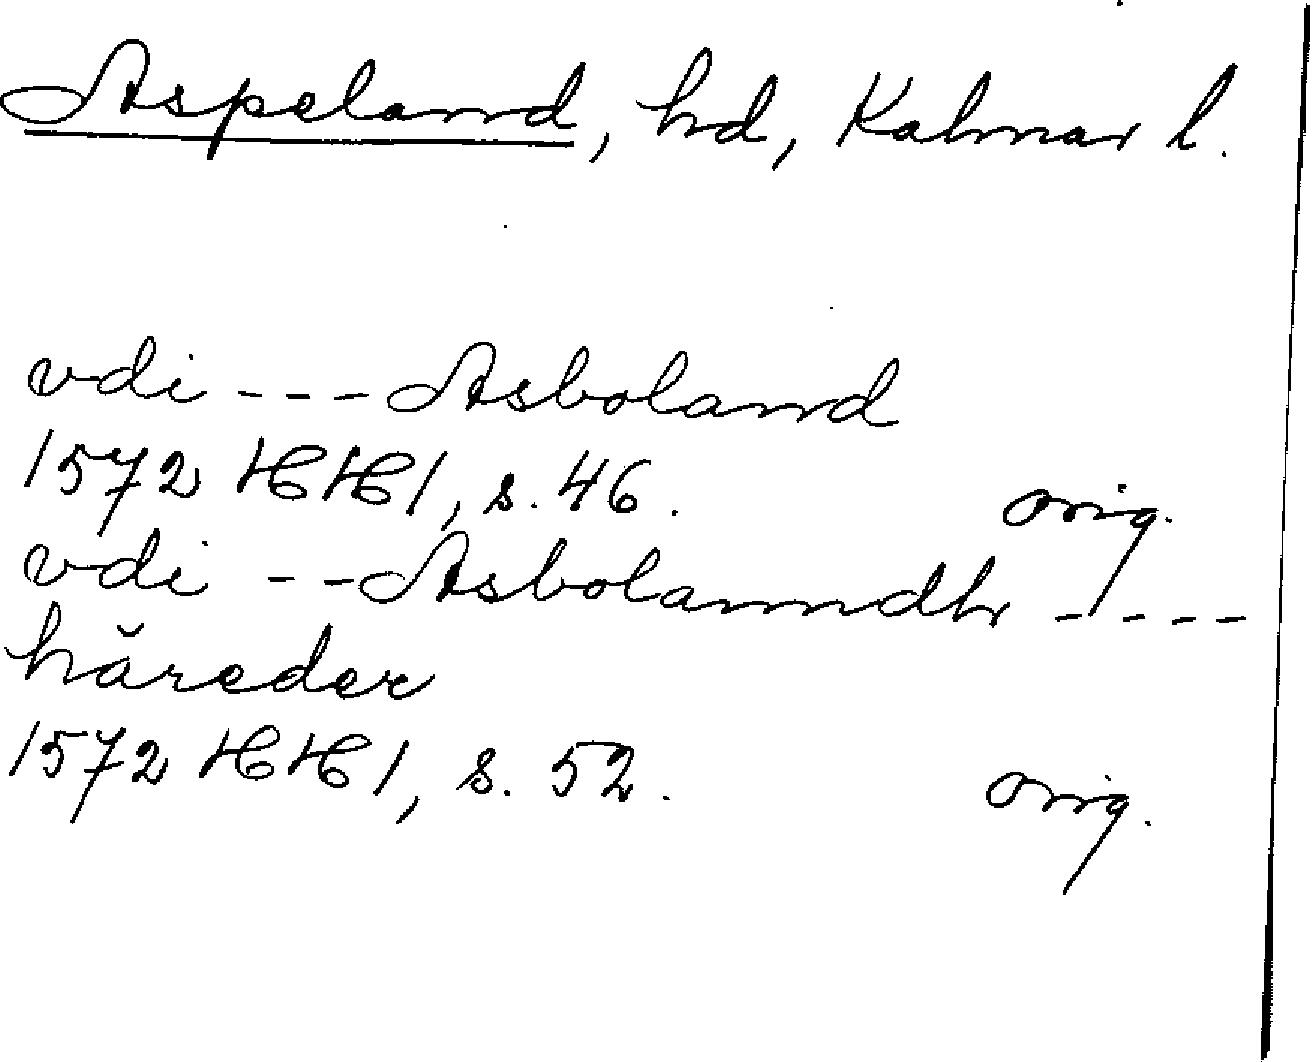 Aspeland, hd, Kalmar l.
vdi --- Asboland
1572 HH 1, s. 46. orig.
vdi -- Asbolanndh ----
håreder
1572 HH 1, s. 52. orig.